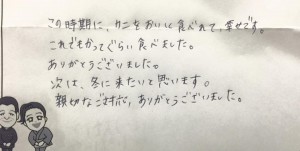 この時期に、カニをおいしく食べれて、幸せです。
これでもかってぐらい食べました。
ありがとうございました。
次は、冬に来たいと思います。
親切なご対応、ありがとうございました。